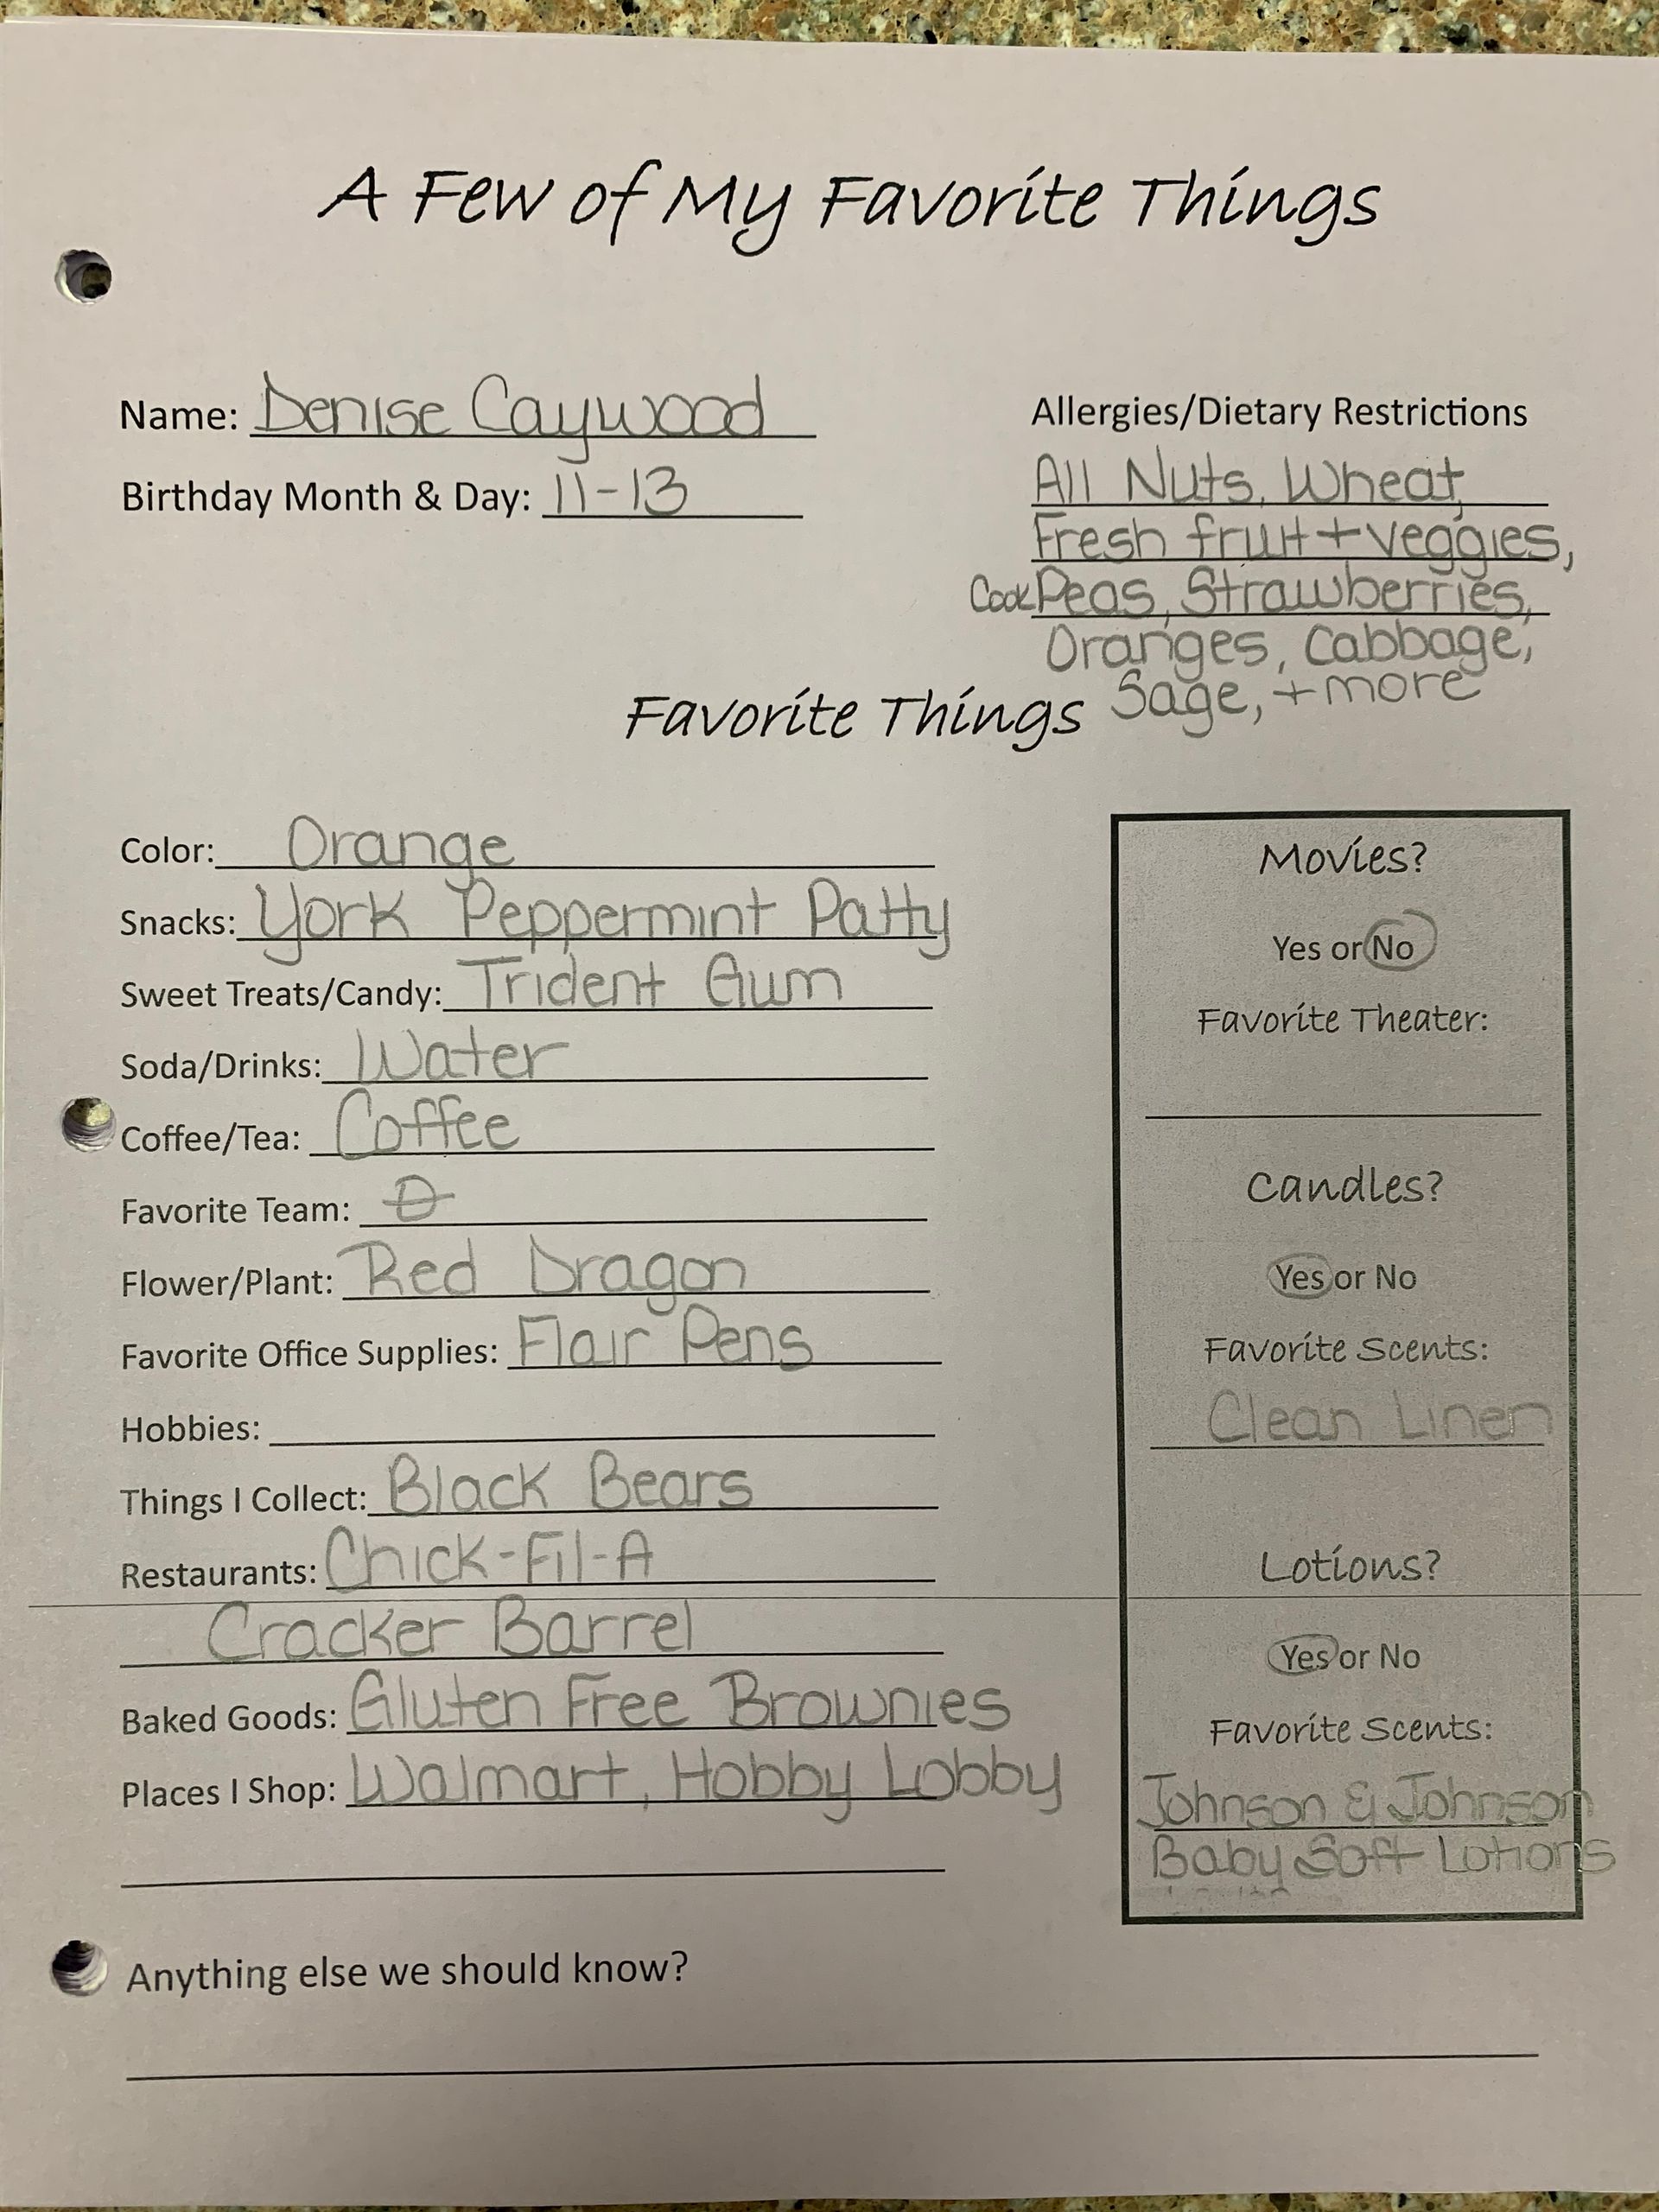 A Few of My Favorite Things
Name: Denise Caywood
Birthday Month & Day: 11-13
Allergies/Dietary Restrictions
All Nuts, Wheat,
Fresh fruit + veggies,
Cook Peas, Strawberries,
Oranges, Cabbage,
Sage, + more
Favorite Things
Color: Orange
Snacks: York Peppermint Patty
Sweet Treats/Candy: Trident Gum
Soda/Drinks: Water
Coffee/Tea: Coffee
Favorite Team:
Flower/Plant: Red Dragon
Favorite Office Supplies: Flair Pens
Hobbies:
Things I Collect: Black Bears
Restaurants: Chick-Fil-A
Cracker Barrel
Baked Goods: Gluten Free Brownies
Places I Shop: Walmart, Hobby Lobby
Movies?
Yes or No
Favorite Theater:
Candles?
Yes or No
Favorite Scents:
Clean Linen
Lotions?
Yes or No
Favorite Scents:
Johnson & Johnson
Baby Soft Lotions
Anything else we should know?